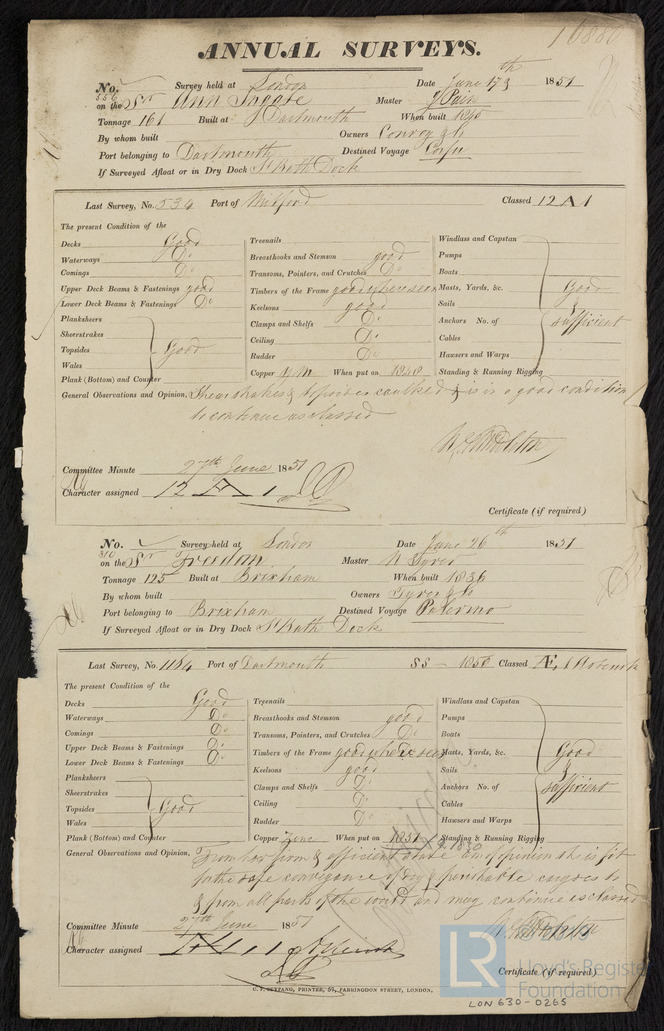 10880
ANNUAL SURVEYS.
No. 556 Survey held at London Date June 17th 1851
on the Sr Ann Master J Pain
Tonnage 161 Built at Dartmouth When built 1845
By whom built Owners Conroy & Co
Port belonging to Dartmouth Destined Voyage Corfu
If Surveyed Afloat or in Dry Dock St Kath Dock
Last Survey, No. 534 Port of Milford Classed 12 A 1
The present Condition of the
Decks Good
Waterways Do
Comings Do
Upper Deck Beams & Fastenings good
Lower Deck Beams & Fastenings Do
Planksheers
Sheerstrakes
Topsides Good
Wales
Plank (Bottom) and Counter
Treenails
Breasthooks and Stemson good
Transoms, Pointers, and Crutches Do
Timbers of the Frame good where seen
Keelsons good
Clamps and Shelfs Do
Ceiling Do
Rudder Do
Copper Y M When put on 1848
Windlass and Capstan
Pumps
Boats
Masts, Yards, &c. Good
Sails &
Anchors No. of sufficient
Cables
Hawsers and Warps
Standing & Running Rigging
General Observations and Opinion, Shearstrakes & Topsides caulked & is in a good condition
to continue as classed
Committee Minute 27th June 1851
Character assigned 12 A 1
Certificate (if required)
No. 310 Survey held at London Date June 26th 1851
on the Sr Freedom Master N Tyrer
Tonnage 125 Built at Brixham When built 1836
By whom built Owners Tyrer & Co
Port belonging to Brixham Destined Voyage Palermo
If Surveyed Afloat or in Dry Dock St Kath Dock
Last Survey, No. 1164 Port of Dartmouth SS - 1850 Classed Æ 1
The present Condition of the
Decks Good
Waterways Do
Comings Do
Upper Deck Beams & Fastenings Do
Lower Deck Beams & Fastenings Do
Planksheers
Sheerstrakes
Topsides Good
Wales
Plank (Bottom) and Counter
Treenails
Breasthooks and Stemson good
Transoms, Pointers, and Crutches Do
Timbers of the Frame good where seen
Keelsons good
Clamps and Shelfs Do
Ceiling Do
Rudder Do
Copper Zinc When put on 1851
Windlass and Capstan
Pumps
Boats
Masts, Yards, &c. Good
Sails &
Anchors No. of sufficient
Cables
Hawsers and Warps
Standing & Running Rigging
General Observations and Opinion, From her firm & efficient state am of opinion she is fit
for the safe conveyance of dry & perishable cargoes to
& from all parts of the world and may continue as classed
Committee Minute 27th June 1851
Character assigned
Certificate (if required)
C. F. SEYFANG, PRINTER, 57, FARRINGDON STREET, LONDON.
LR Lloyd's Register
Foundation
LON630-0265